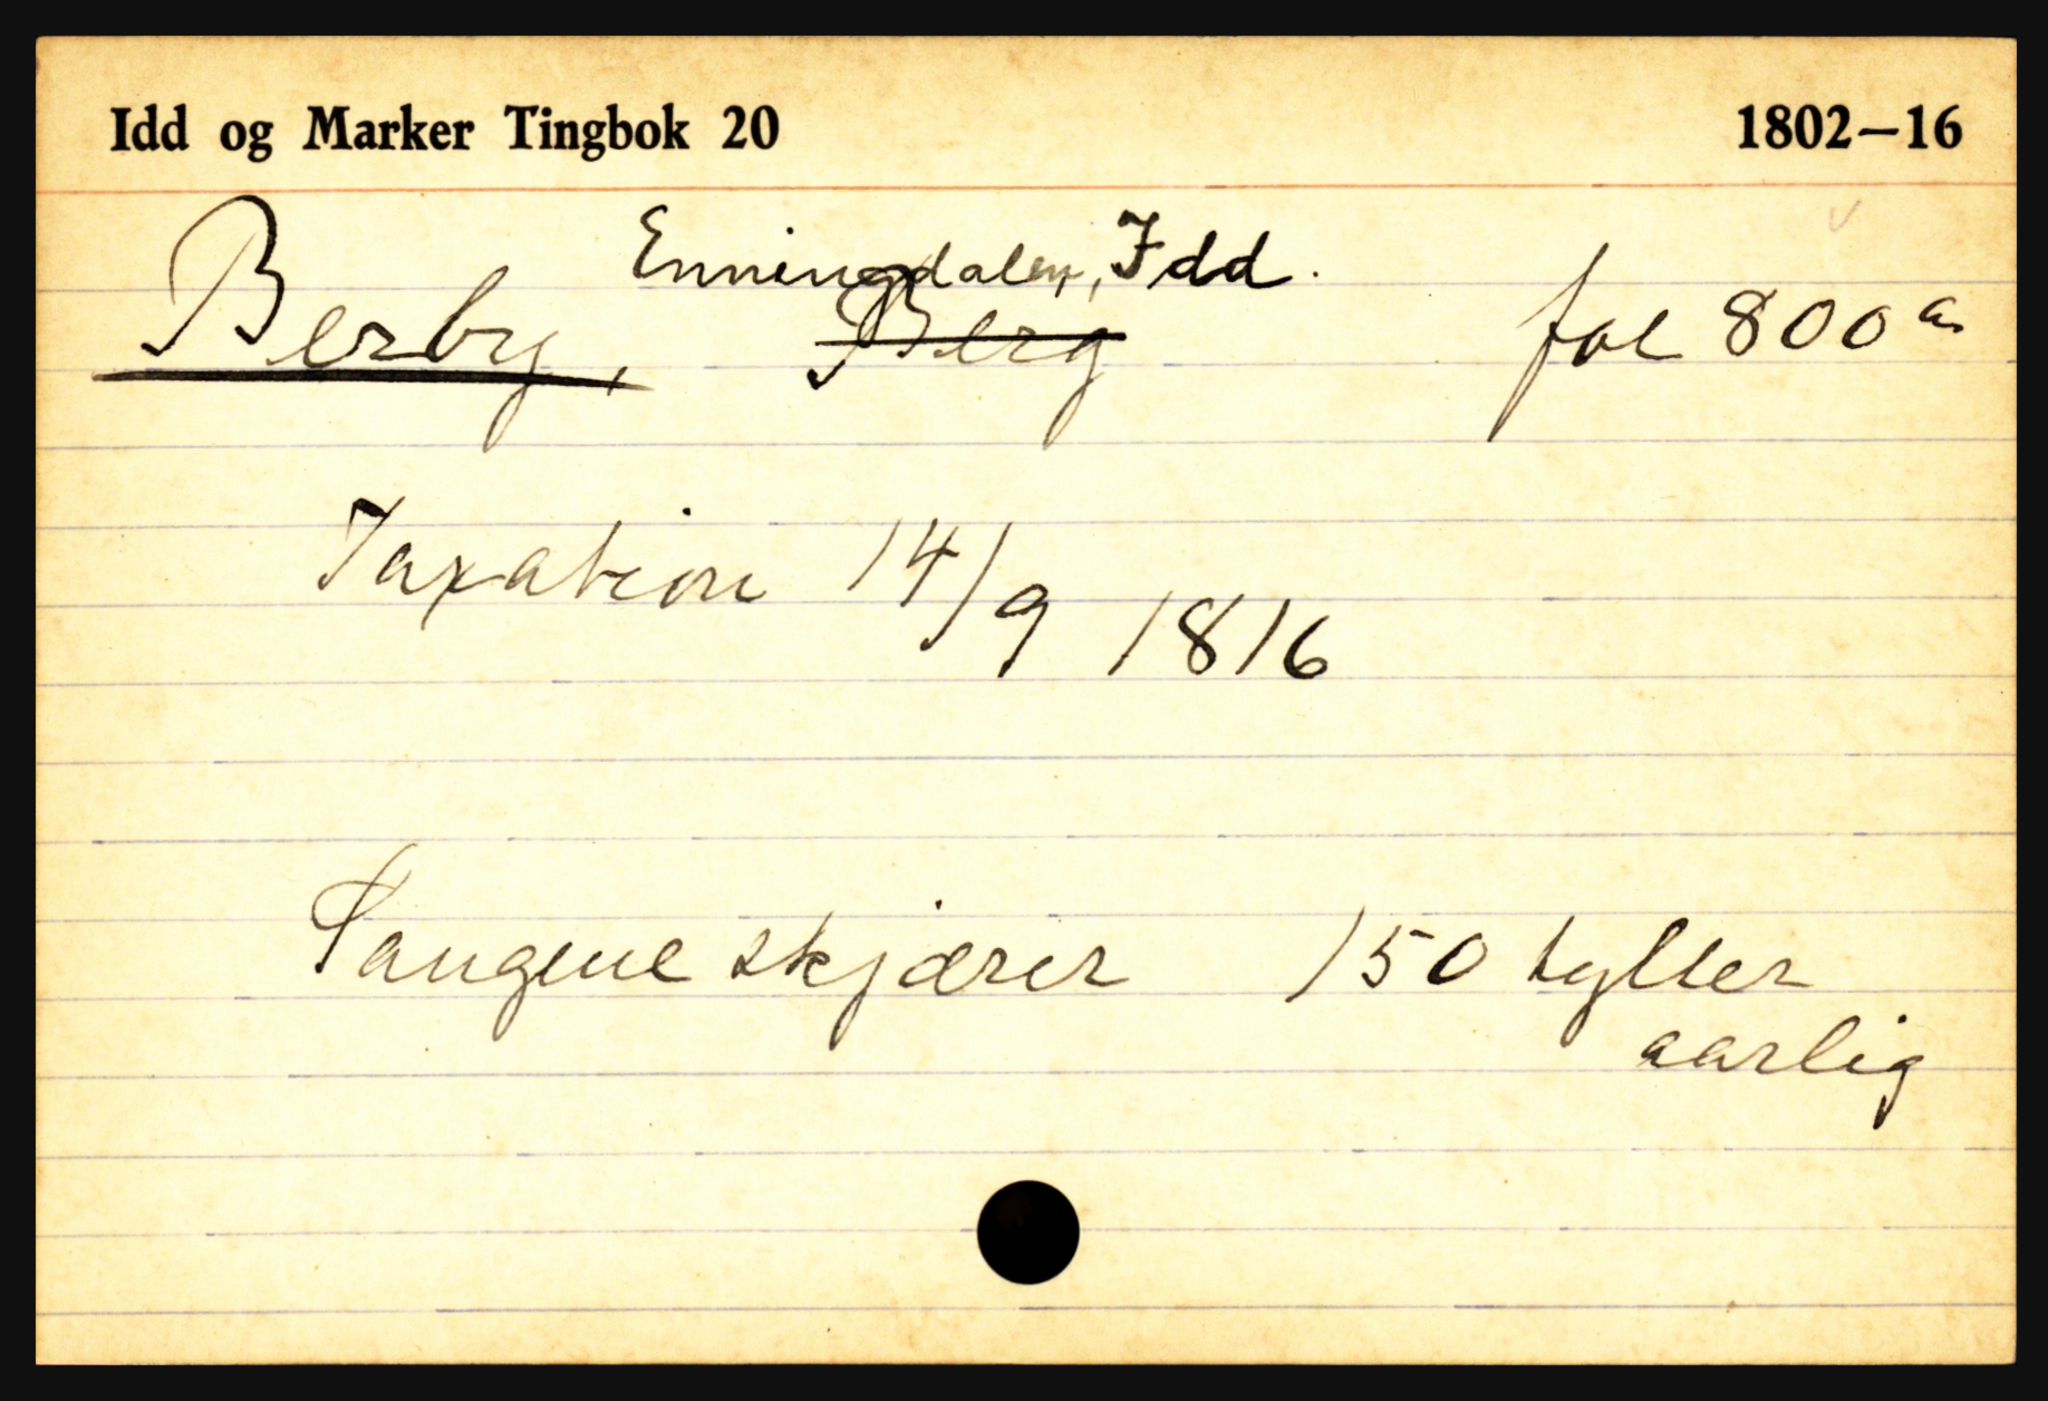 Idd og Marker Tingbok 20 1802—16
Enningdalen, Idd.
Berby, Berg fol 800 a
Taxation 14/9 1816
Saugene skjærer 150 tylter
aarlig